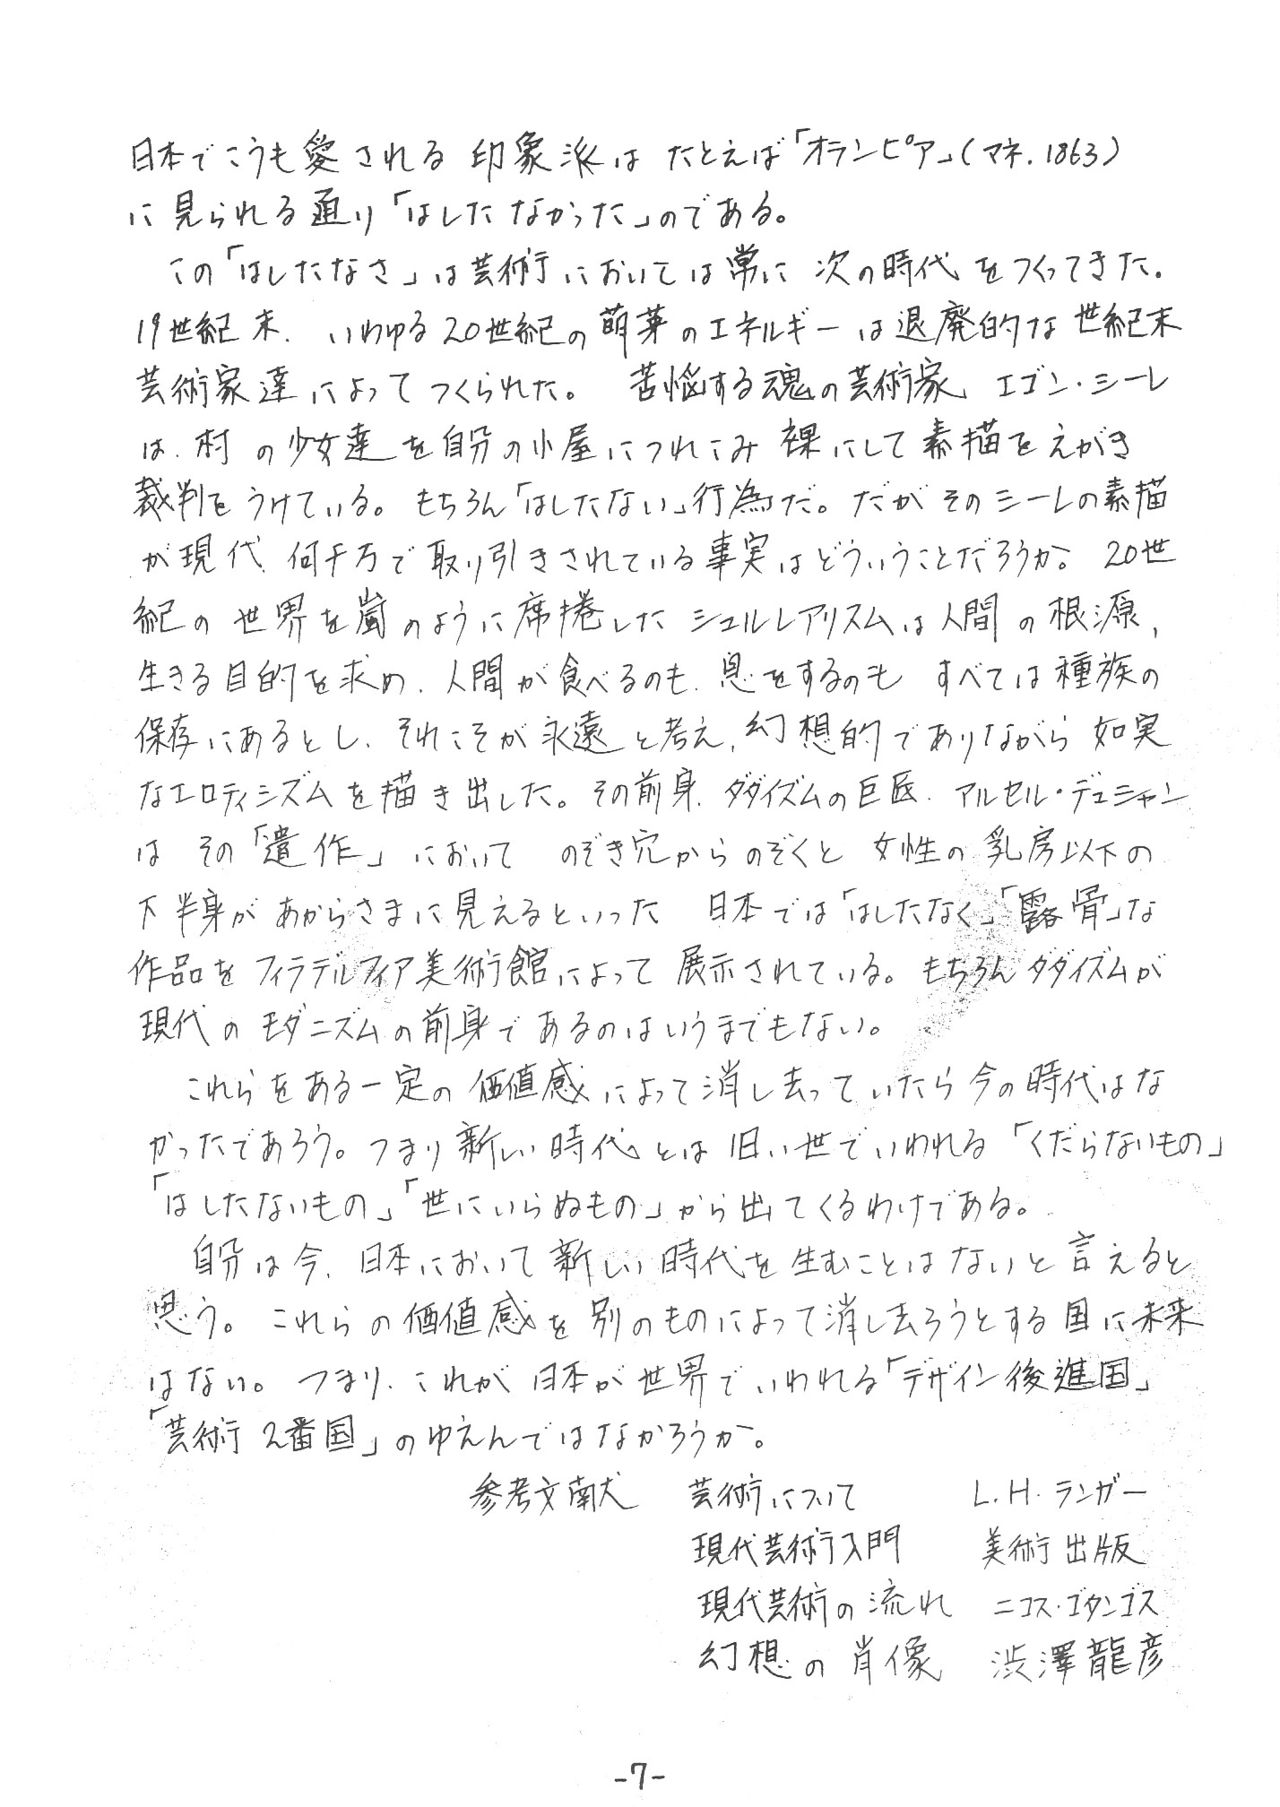 日本でこうも愛される 印象派は たとえば「オランピア」(マネ.1863)
に見られる通り「はしたなかった」のである。
この「はしたなさ」は芸術においては常に 次の時代 をつくってきた。
19世紀末. いわゆる20世紀の萌芽のエネルギーは退廃的な世紀末
芸術家達によってつくられた。 苦悩する魂の芸術家、エゴン・シーレ
は、村の少女達を自分の小屋につれこみ 裸にして素描をえがき
裁判をうけている。もちろん「はしたない」行為だ。だがそのシーレの素描
が現代、何千万で取り引きされている事実はどういうことだろうか。20世
紀の世界を嵐のように席捲した シュルレアリスムは人間の根源、
生きる目的を求め、人間が食べるのも、息をするのも すべては種族の
保存にあるとし、それこそが永遠と考え、幻想的でありながら如実
なエロティシズムを描き出した。その前身、ダダイズムの巨匠、アルセル・デュシャン
は その「遺作」において のぞき穴からのぞくと 女性の乳房以下の
下半身があからさまに見えるといった 日本では「はしたなく」「露骨」な
作品をフィラデルフィア美術館によって展示されている。もちろんダダイズムが
現代のモダニズムの前身であるのはいうまでもない。
これらをある一定の価値感によって消し去っていたら今の時代はな
かったであろう。つまり新しい時代とは旧い世でいわれる「くだらないもの」
「はしたないもの」「世にいらぬもの」から出てくるわけである。
自分は今、日本において新しい時代を生むことはないと言えると
思う。これらの価値感を別のものによって消し去ろうとする国に未来
はない。つまり、これが日本が世界でいわれる「デザイン後進国」
「芸術2番国」のゆえんではなかろうか。
参考文献 芸術について L.H.ランガー
現代芸術入門 美術出版
現代芸術の流れ ニコス・ゴタンゴス
幻想の肖像 渋澤龍彦
-7-